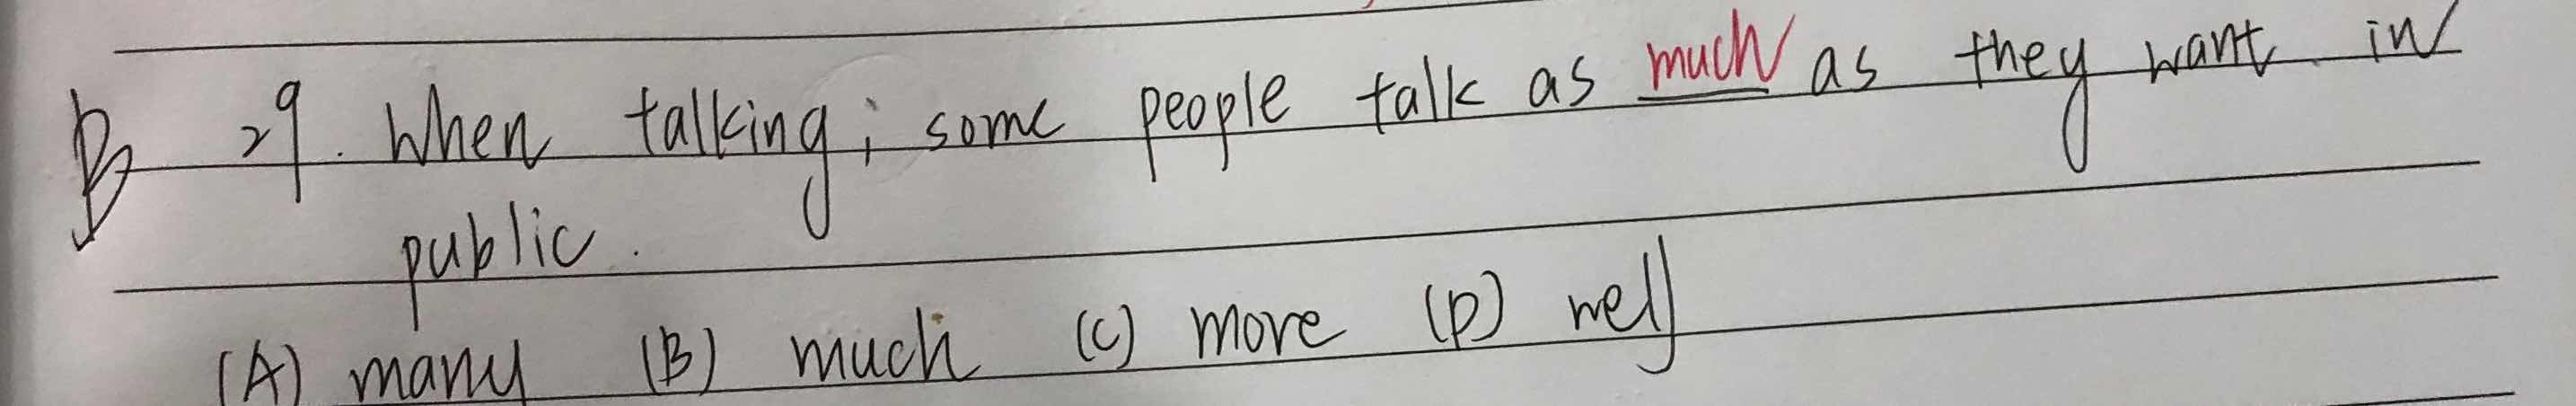 B 29. When talking, some people talk as much as they want in
public.
(A) many (B) much (C) more (D) well